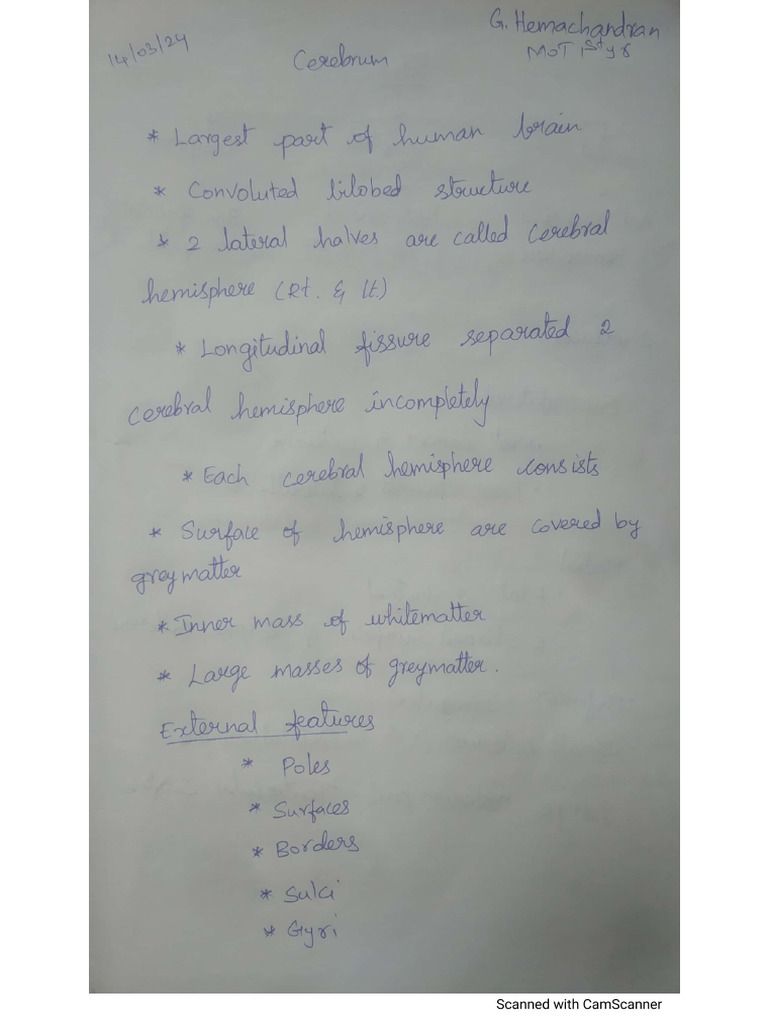 G. Hemachandran
14/03/24
MOT 1st yr
Cerebrum
* Largest part of human brain
* Convoluted bilobed structure
* 2 lateral halves are called cerebral
hemisphere (Rt. & lt.)
* Longitudinal fissure separated 2
cerebral hemisphere incompletely
* Each cerebral hemisphere consists
* Surface of hemisphere are covered by
greymatter
* Inner mass of whitematter
* Large masses of greymatter.
External features
* Poles
* Surfaces
* Borders
* Sulci
* Gyri
Scanned with CamScanner